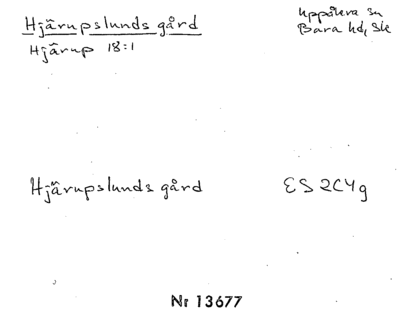 Hjärupslunds gård
Uppåkra sn
Hjärup 18:1
Bara hd, Sk
Hjärupslunds gård
ES 2C4g
Nr 13677